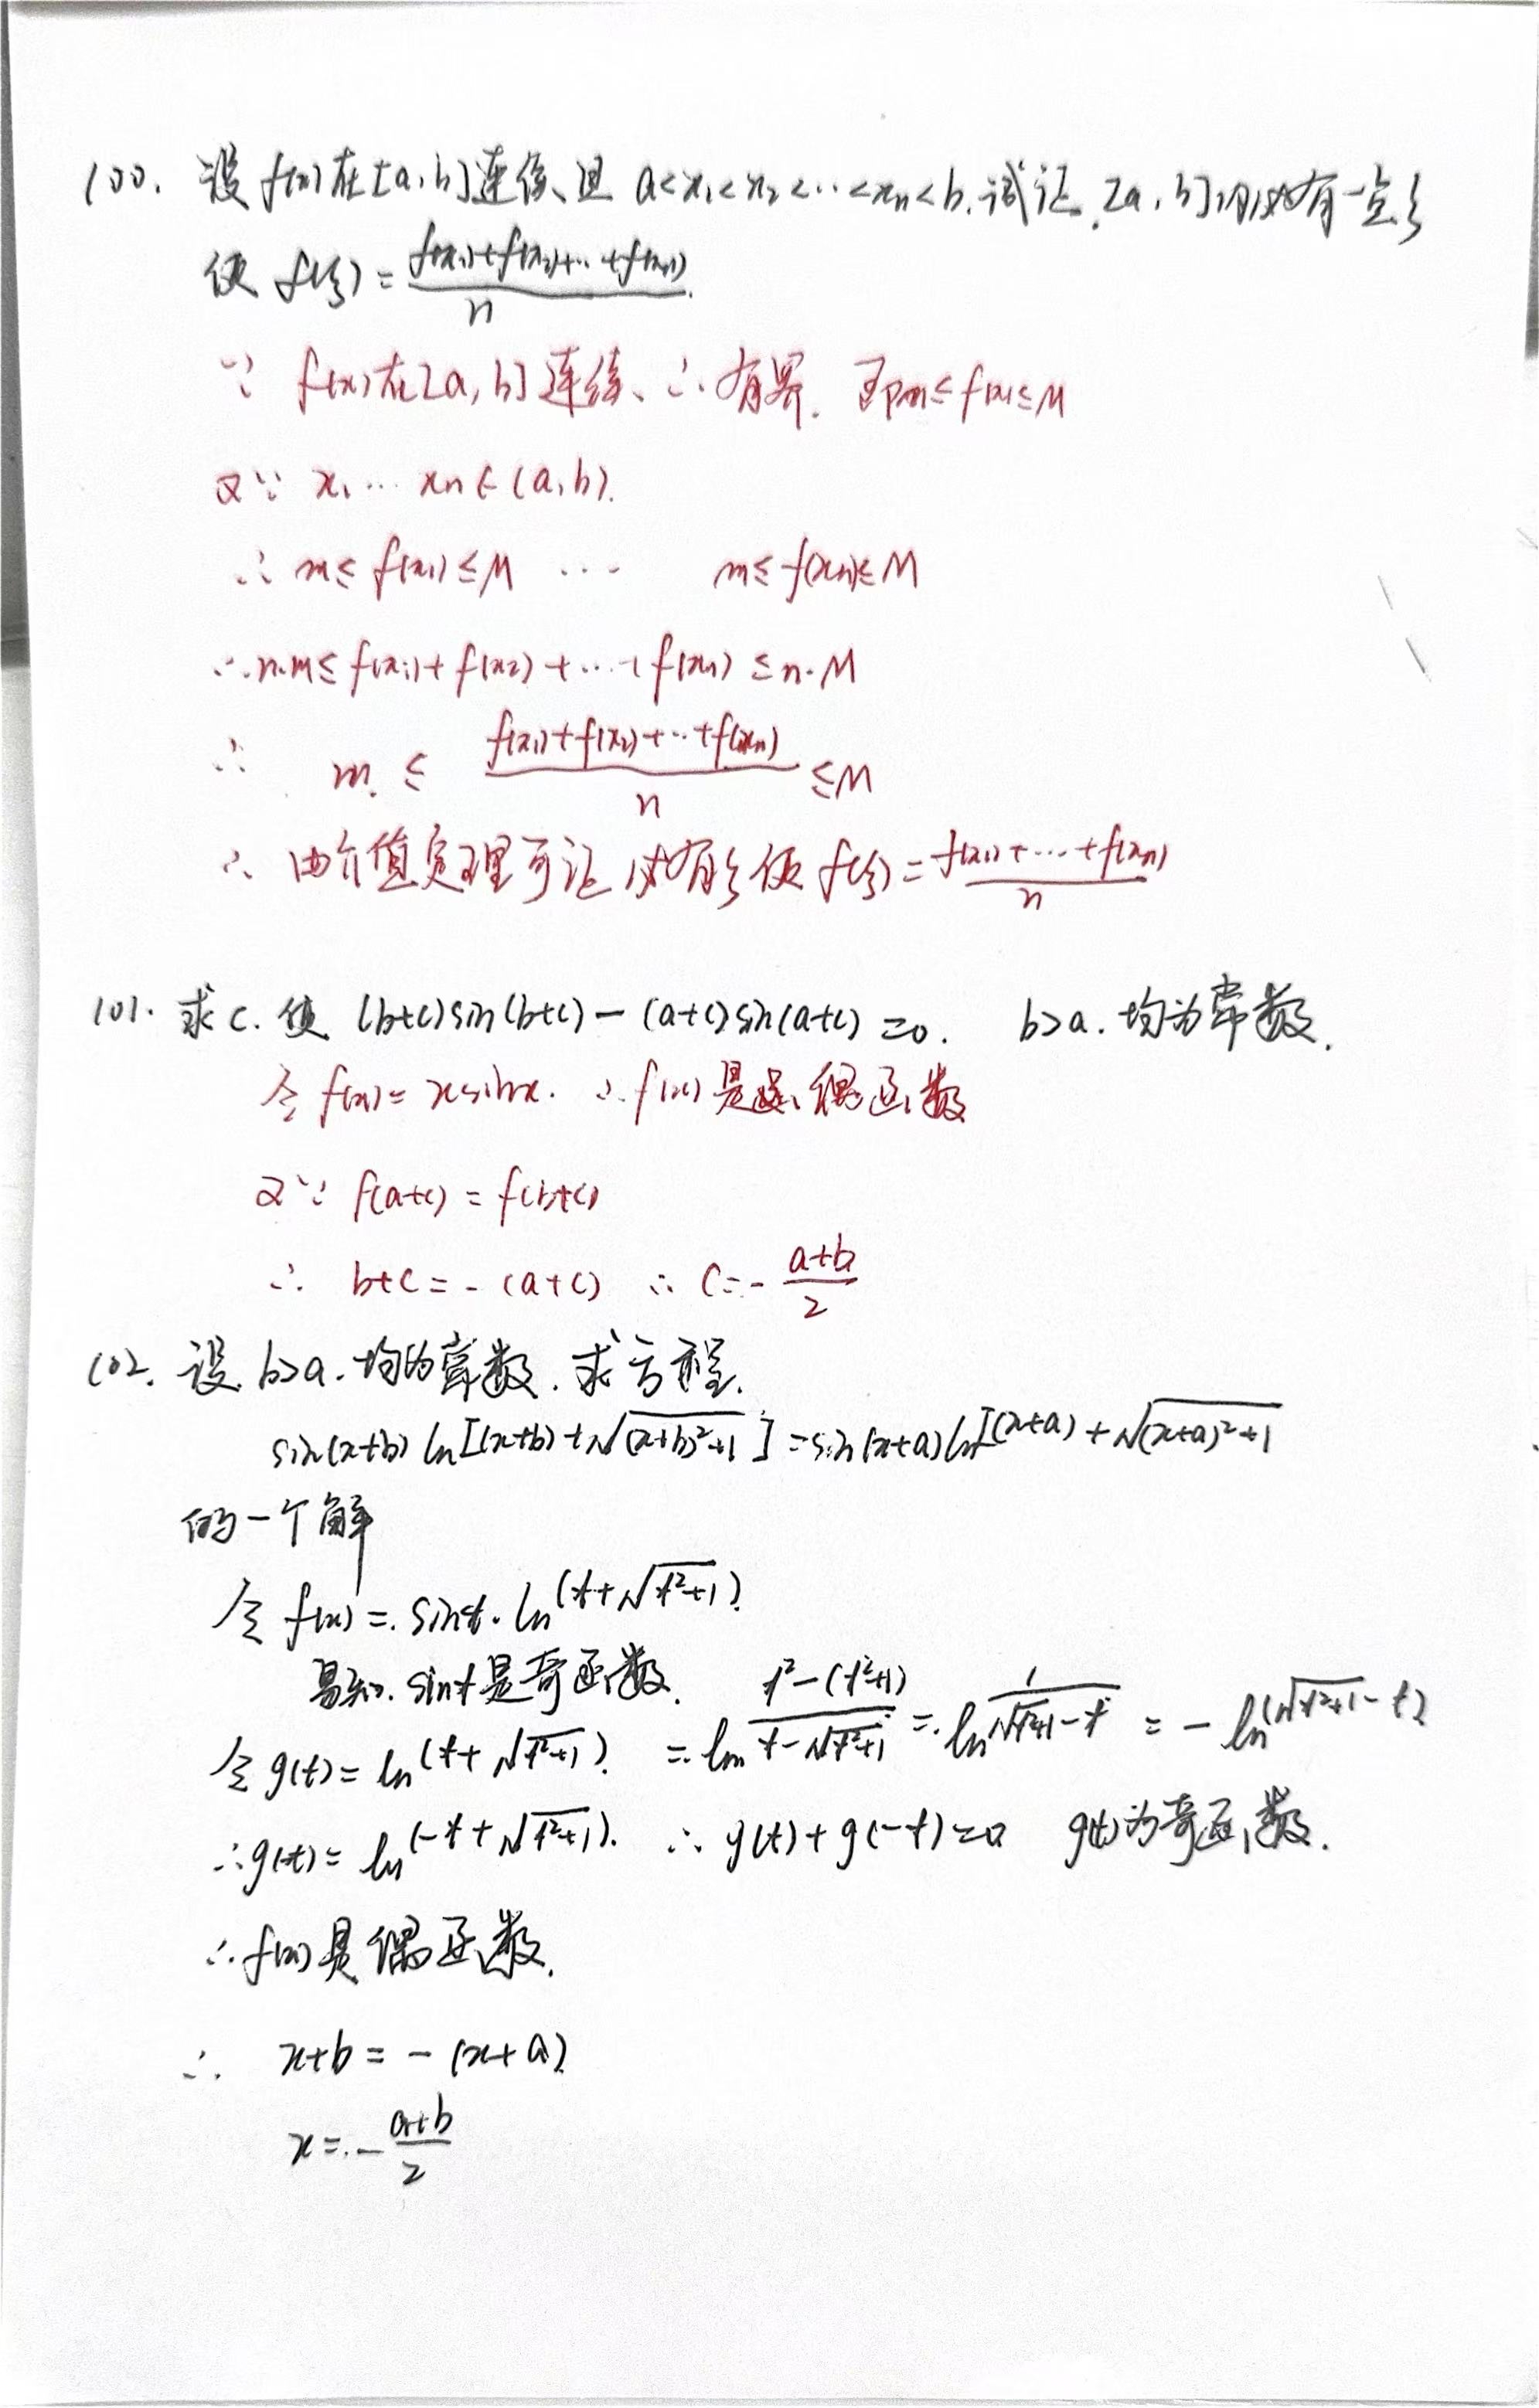 100. 设 f(x) 在[a,b]连续、且 a<x₁<x₂<…<xₙ<b. 试证. [a,b]内必有一点ξ
使 f(ξ) = (f(x₁)+f(x₂)+…+f(xₙ))/n.
∵ f(x)在[a,b]连续、∴ 有界. 即m≤f(x)≤M
又∵ x₁…xₙ∈(a,b).
∴ m≤f(x₁)≤M … m≤f(xₙ)≤M
∴ n·m≤f(x₁)+f(x₂)+…+f(xₙ)≤n·M
∴ m ≤ (f(x₁)+f(x₂)+…+f(xₙ))/n ≤M
∴ 由介值定理可证 必有ξ使 f(ξ)=(f(x₁)+…+f(xₙ))/n
101. 求c. 使 (b+c)sin(b+c) - (a+c)sin(a+c) =0. b>a. 均为常数.
令 f(x)= xsinx. ∴ f(x) 是 偶函数
又∵ f(a+c) = f(b+c)
∴ b+c = -(a+c) ∴ c=-(a+b)/2
102. 设 b>a. 均为常数. 求方程.
sin(x+b) ln[(x+b)+√((x+b)²+1)] =sin(x+a)ln[(x+a)+√((x+a)²+1)
的一个解
令 f(x) = sint·ln(t+√(t²+1)).
易知. sint是奇函数.
令g(t)= ln(t+√(t²+1)). = ln (t²-(t²+1))/(t-√(t²+1)) = ln 1/(√(t²+1)-t) = -ln(√(t²+1)-t)
∴g(-t)= ln(-t+√(t²+1)). ∴ g(t)+g(-t)=0 g(t)为奇函数.
∴f(x)是偶函数.
∴ x+b = -(x+a)
x=-(a+b)/2